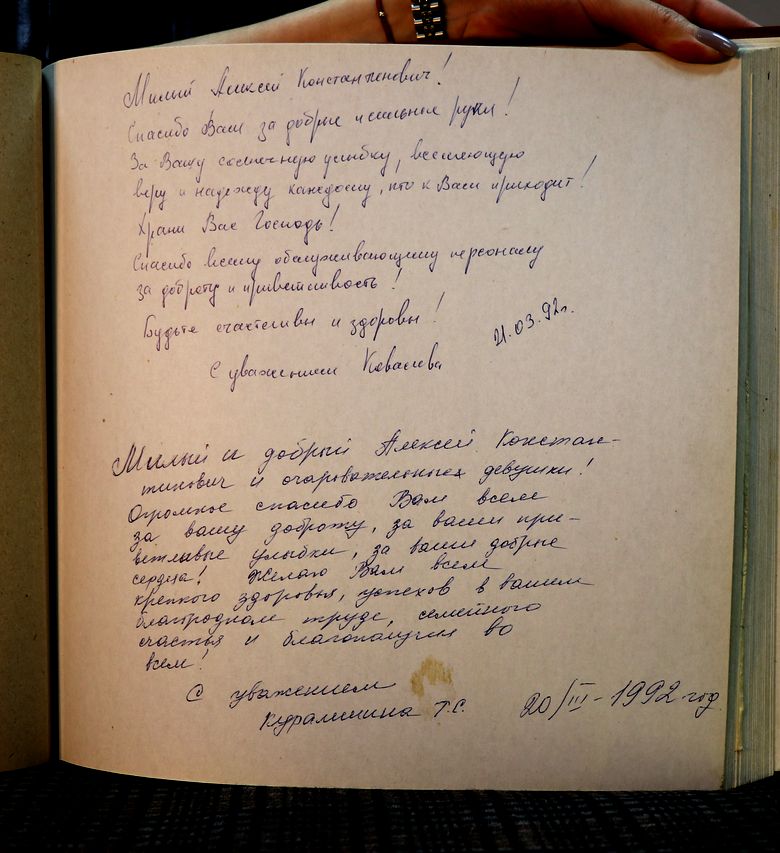 Милый Алексей Константинович!
Спасибо Вам за добрые и сильные руки!
За Вашу солнечную улыбку, вселяющую
веру и надежду каждому, кто к Вам приходит!
Храни Вас Господь!
Спасибо всему обслуживающему персоналу
за доброту и приветливость!
Будьте счастливы и здоровы!
21.03.92г.
С уважением Ковалева
Милый и добрый Алексей Констан-
тинович и очаровательные девушки!
Огромное спасибо Вам всем
за вашу доброту, за ваши при-
ветливые улыбки, за ваши добрые
сердца! Желаю Вам всем
крепкого здоровья, успехов в вашем
благородном труде, семейного
счастья и благополучия во
всем!
С уважением
Т.С.
20/III-1992 год